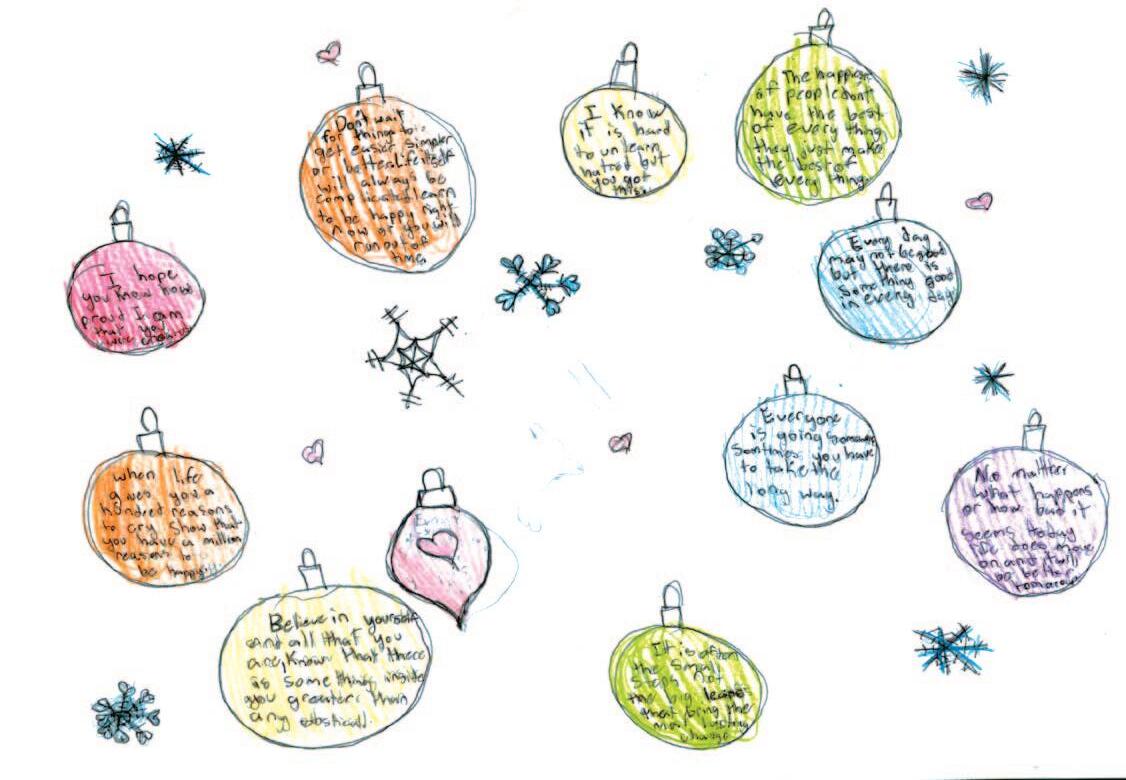 Don't wait
for things to
get easier simpler
or better. Life itself
will always be
complicated learn
to be happy right
now or you will
run out of
time.
I know
it is hard
to unlearn
hatred but
you got
this.
The happiest
of people dont
have the best
of every thing
they just make
the best of
every thing.
I hope
you know how
proud I am
that you
Every day
may not be good
but there is
something good
in every day
Everyone
is going somewhere
you have
to take the
long way.
when life
gives you a
hundred reasons
to cry show that
you have a million
reasons to
be happy.
No matter
what happens
or how bad it
seems today
life does move
on and it will
be better
Believe in yourself
and all that you
are, Know that there
is something inside
you greater than
any
It is often
the small
steps not
the big leapes
that bring the
most lasting
change